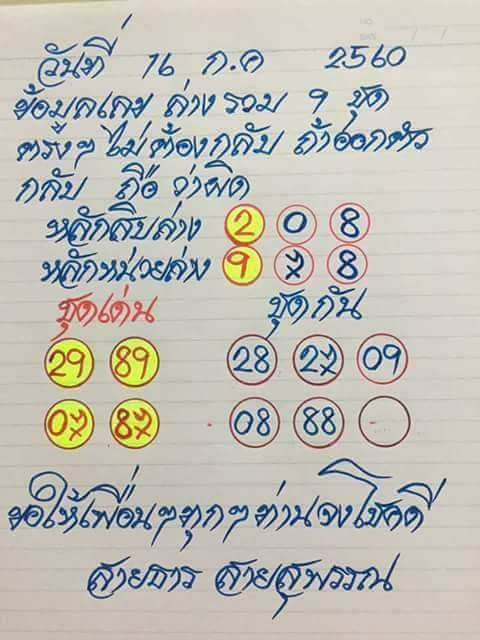 วันที่ 16 ก.ค 2560
ข้อมูลเลข ล่าง รวม 9 ชุด
ตรงๆ ไม่ต้องกลับ ถ้าออกตัว
กลับ ถือ ว่าผิด
หลักสิบล่าง 2 0 8
หลักหน่วยล่าง 9 7 8
ชุดเด่น ชุดกัน
29 89 28 27 09
07 87 08 88 -
ขอให้เพื่อนๆทุกๆท่านจงโชคดี
สายธาร สายสุพรรณ